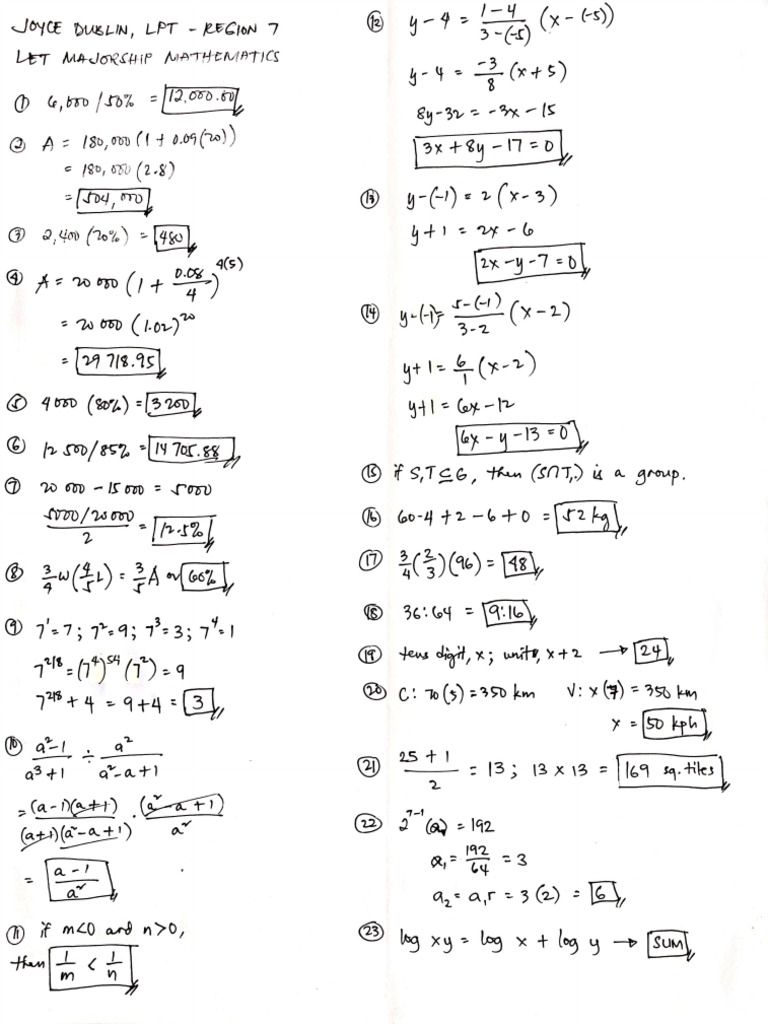 JOYCE DUBLIN, LPT - REGION 7
LET MAJORSHIP MATHEMATICS
① 6,000/50% = 12,000.00
② A = 180,000(1 + 0.09(20))
= 180,000(2.8)
= 504,000
③ 2,400(20%) = 480
④ A = 20 000(1 + 0.08/4)^4(5)
= 20 000(1.02)^20
= 29 718.95
⑤ 4000(80%) = 3200
⑥ 12 500/85% = 14 705.88
⑦ 20 000 - 15 000 = 5000
(5000/20000)/2 = 12.5%
⑧ 3/4 W(4/5 L) = 3/5 A or 60%
⑨ 7^1 = 7; 7^2 = 9; 7^3 = 3; 7^4 = 1
7^218 = (7^4)^54 (7^2) = 9
7^218 + 4 = 9 + 4 = 3
⑩ (a²-1)/(a³+1) ÷ a²/(a²-a+1)
= (a-1)(a+1)/(a+1)(a²-a+1) · (a²-a+1)/a²
= (a-1)/a²
⑪ if m<0 and n>0,
then 1/m < 1/n
⑫ y - 4 = (1-4)/(3-(-5)) (x - (-5))
y - 4 = -3/8 (x + 5)
8y - 32 = -3x - 15
3x + 8y - 17 = 0
⑬ y-(-1) = 2(x - 3)
y + 1 = 2x - 6
2x - y - 7 = 0
⑭ y-(-1) = (5-(-1))/(3-2) (x - 2)
y + 1 = 6/1 (x - 2)
y + 1 = 6x - 12
6x - y - 13 = 0
⑮ if S,T ⊆ G, then (S∩T,·) is a group.
⑯ 60 - 4 + 2 - 6 + 0 = 52 kg
⑰ 3/4 (2/3)(96) = 48
⑱ 36:64 = 9:16
⑲ tens digit, x; units, x + 2 → 24
⑳ C: 70(5) = 350 km V: x(7) = 350 km
x = 50 kph
㉑ (25 + 1)/2 = 13; 13 x 13 = 169 sq. tiles
㉒ 2^7-1 (a₁) = 192
a₁ = 192/64 = 3
a₂ = a₁r = 3(2) = 6
㉓ log xy = log x + log y → SUM